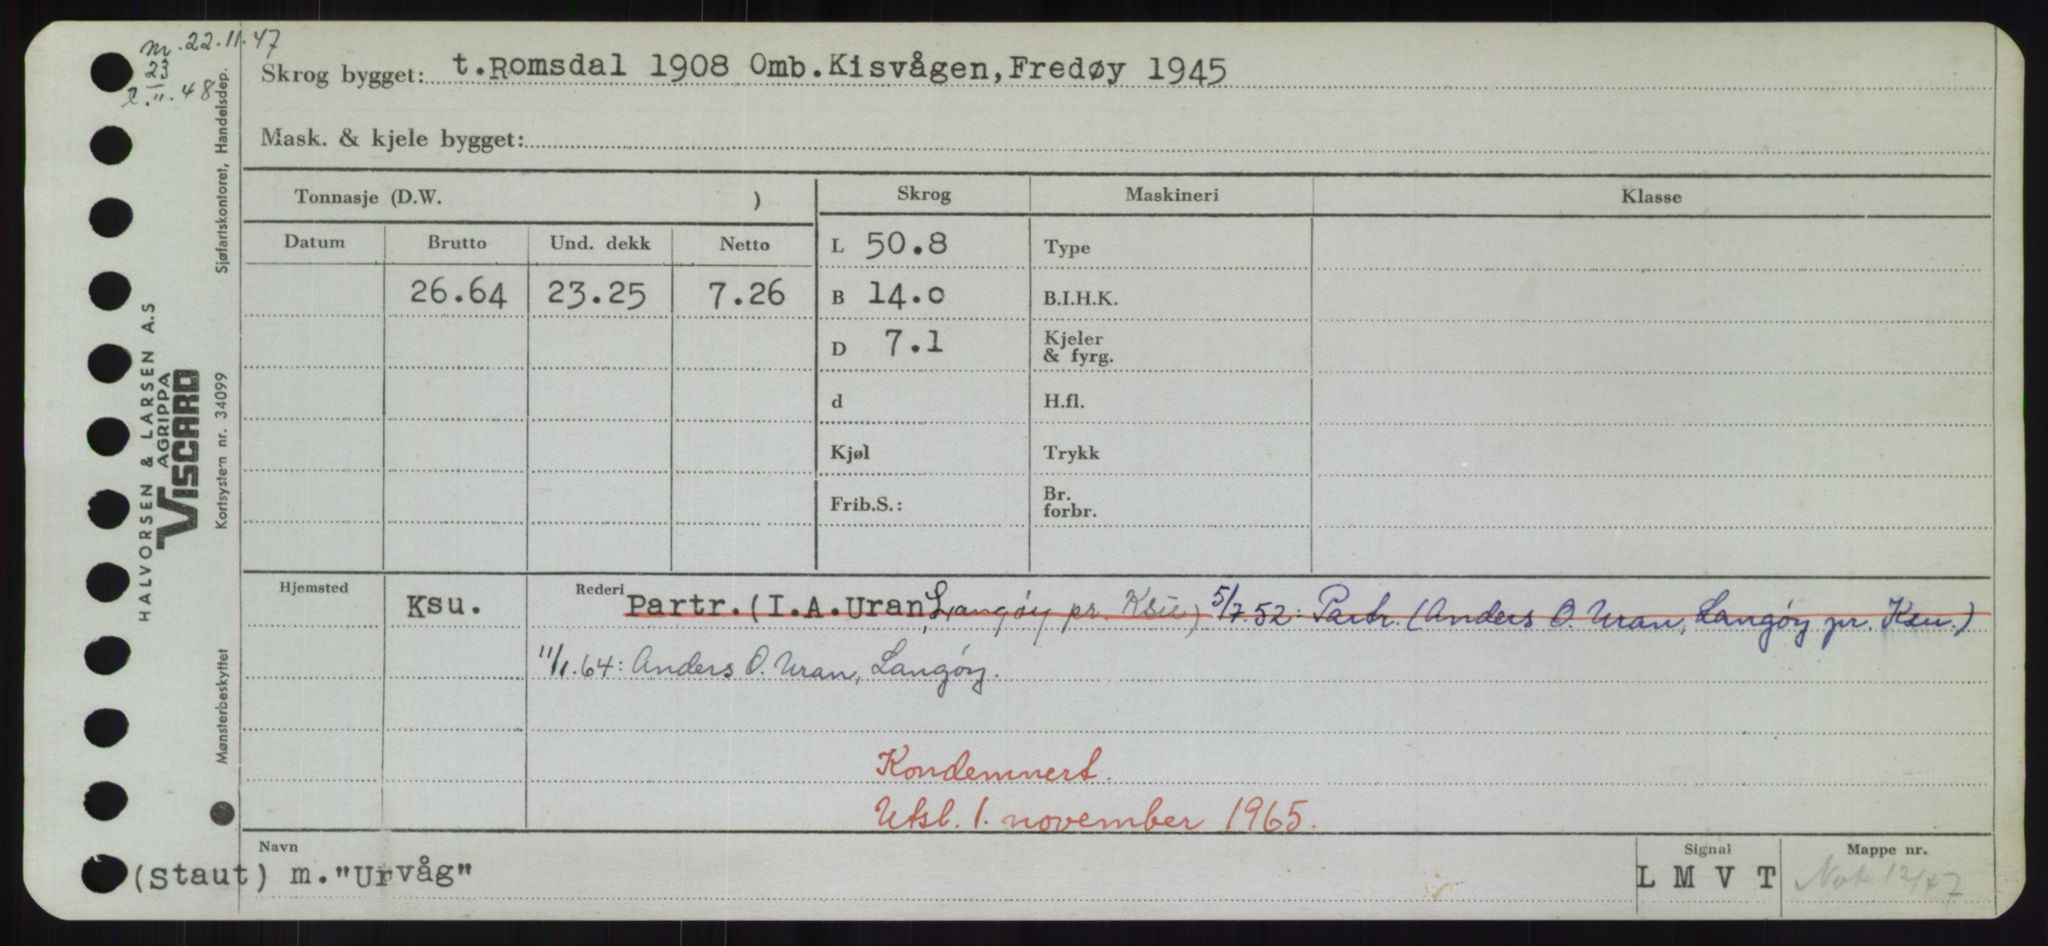 nr. 22.11.47
23
2.11.48
Skrog bygget: t.Romsdal 1908 Omb.Kisvågen,Fredøy 1945
Mask. & kjele bygget:
Tonnasje (D.W. )
Skrog
Maskineri
Klasse
Datum
Brutto
Und. dekk
Netto
26.64
23.25
7.26
L 50.8
B 14.0
D 7.1
d
Kjøl
Frib.S.:
Type
B.I.H.K.
Kjeler
& fyrg.
H.fl.
Trykk
Br.
forbr.
Hjemsted
Ksu.
Rederi
Partr.(I.A.Uran, Langöy pr. Ksu) 5/7.52: Partr. (Anders O. Uran, Langöy pr. Ksu.)
11/1.64: Anders O. Uran, Langöy.
Kondemnert.
Utsl. 1. november 1965.
Navn
(Staut) m."Urvåg"
Signal
L M V T
Mappe nr.
Not 12/47
HALVORSEN & LARSEN A.S
AGRIPPA
VISCARD
Sjøfartskontoret, Handelsdep.
Kortsystem nr. 34099
Mønsterbeskyttet